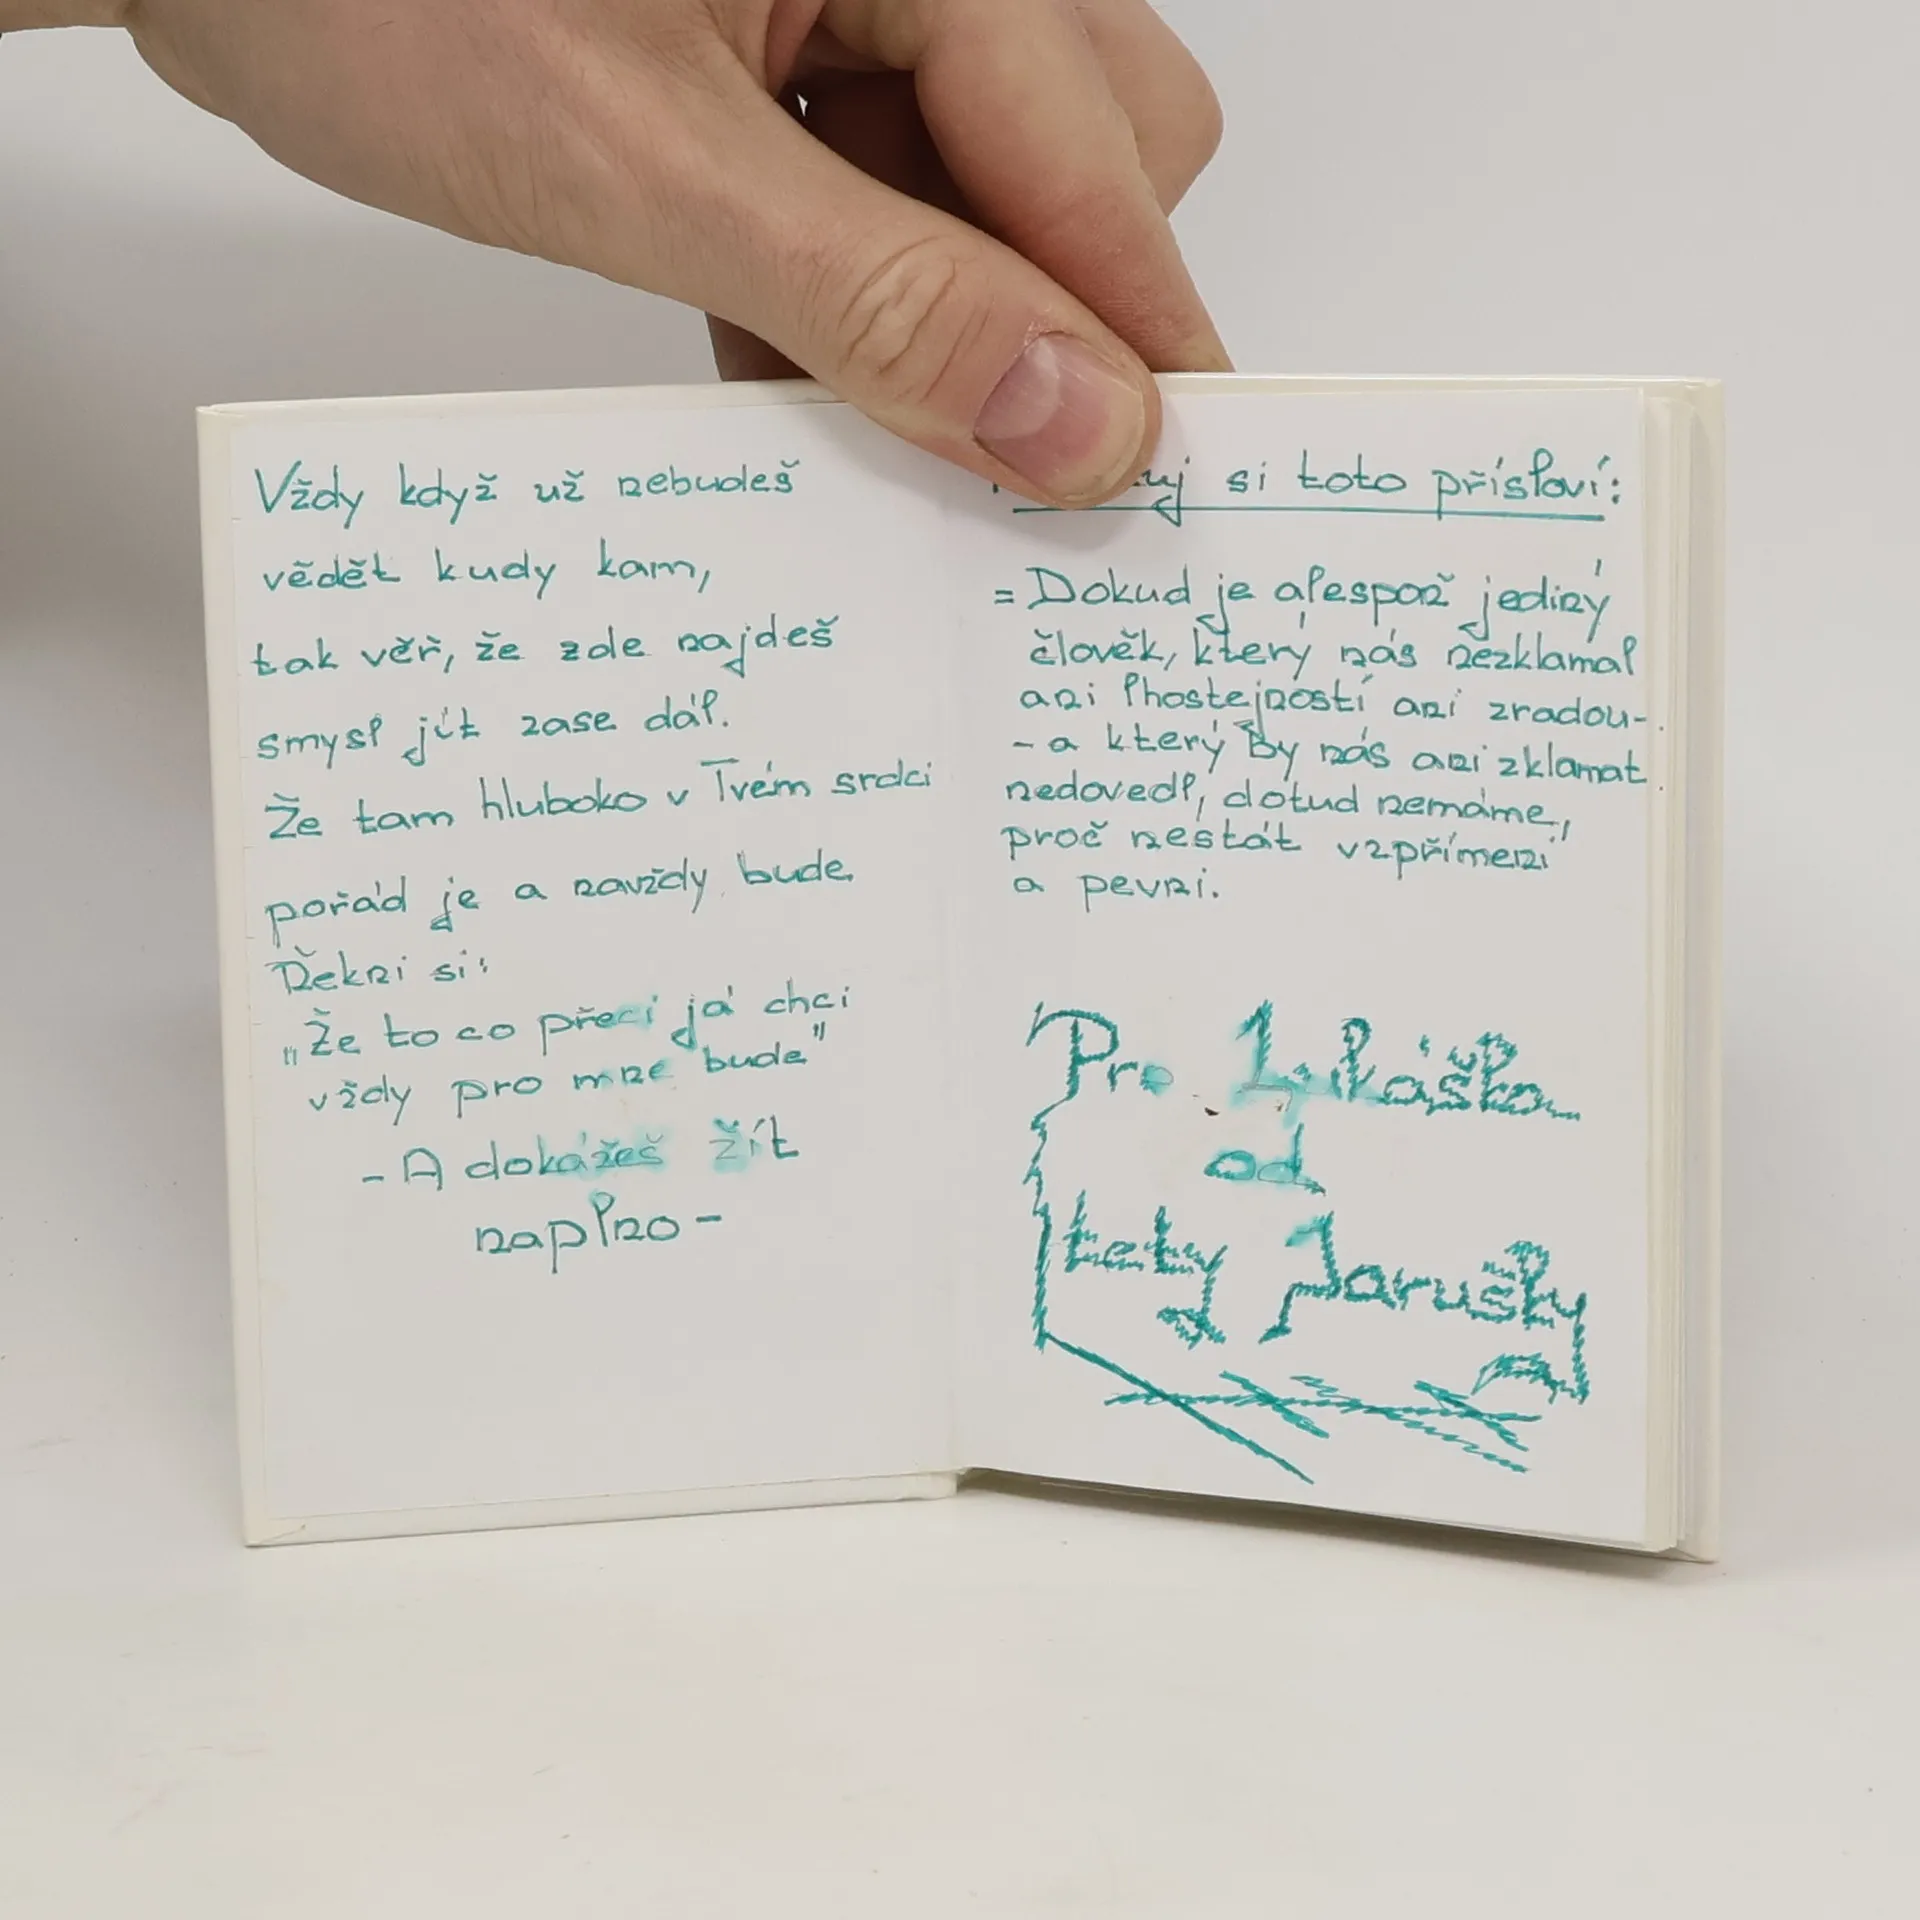 Vždy když už nebudeš
vědět kudy kam,
tak věř, že zde najdeš
smysl jít zase dál.
Že tam hluboko v Tvém srdci
pořád je a navždy bude.
Řekni si:
„Že to co přeci já chci
vždy pro mne bude"
- A dokážeš žít
naplno -
si toto přísloví:
= Dokud je alespoň jediný
člověk, který nás nezklamal
ani lhostejností ani zradou-
- a který by nás ani zklamat
nedovedl, dotud nemáme,
proč nestát vzpřímeni
a pevni.
Pro
od
tety Jarušky